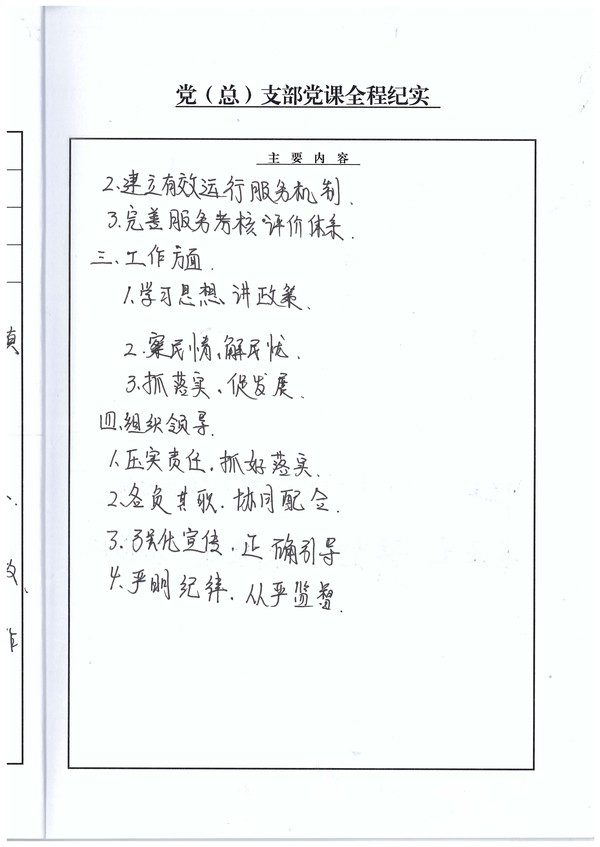 党（总）支部党课全程纪实
主要内容
2.建立有效运行服务机制.
3.完善服务考核评价体系.
三、工作方面.
1.学习思想、讲政策.
2.察民情、解民忧.
3.抓落实、促发展.
四、组织领导.
1.压实责任，抓好落实.
2.各负其职，协同配合.
3.强化宣传，正确引导
4.严明纪律，从严监督.